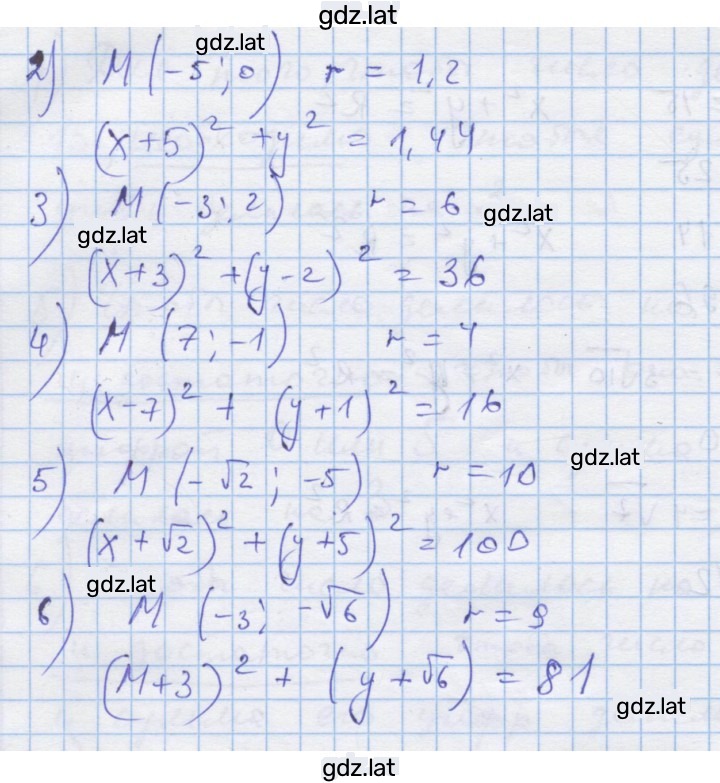 gdz.lat
gdz.lat
2) M (-5; 0) r = 1,2
(x+5)² + y² = 1,44
3) M (-3; 2) r = 6
gdz.lat
gdz.lat
(x+3)² + (y-2)² = 36
4) M (7; -1) r = 4
(x-7)² + (y+1)² = 16
5) M (-√2; -5) r = 10
gdz.lat
(x + √2)² + (y+5)² = 100
gdz.lat
6) M (-3; -√6) r = 9
(M+3)² + (y + √6) = 81
gdz.lat
gdz.lat